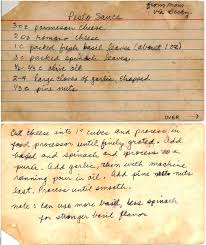 Pesto Sauce
from mom
via Becky
3 oz parmesan cheese
2 oz romano cheese
1 c packed fresh basil leaves (about 1 oz)
3 c packed spinach leaves
1/2 - 3/4 c olive oil
2-4 large cloves of garlic, chopped
1/2 c pine nuts
OVER
Cut cheese into 1" cubes and process in
food processor until finely grated. Add
basil and spinach and process to
purée. Add garlic, then with machine
running pour in oil. Add pine nuts
last. Process until smooth.
note: can use more basil, less spinach
for stronger basil flavor